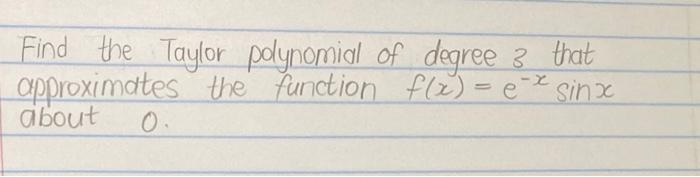 Find the Taylor polynomial of degree 3 that
approximates the function f(x) = e^-x sinx
about 0.